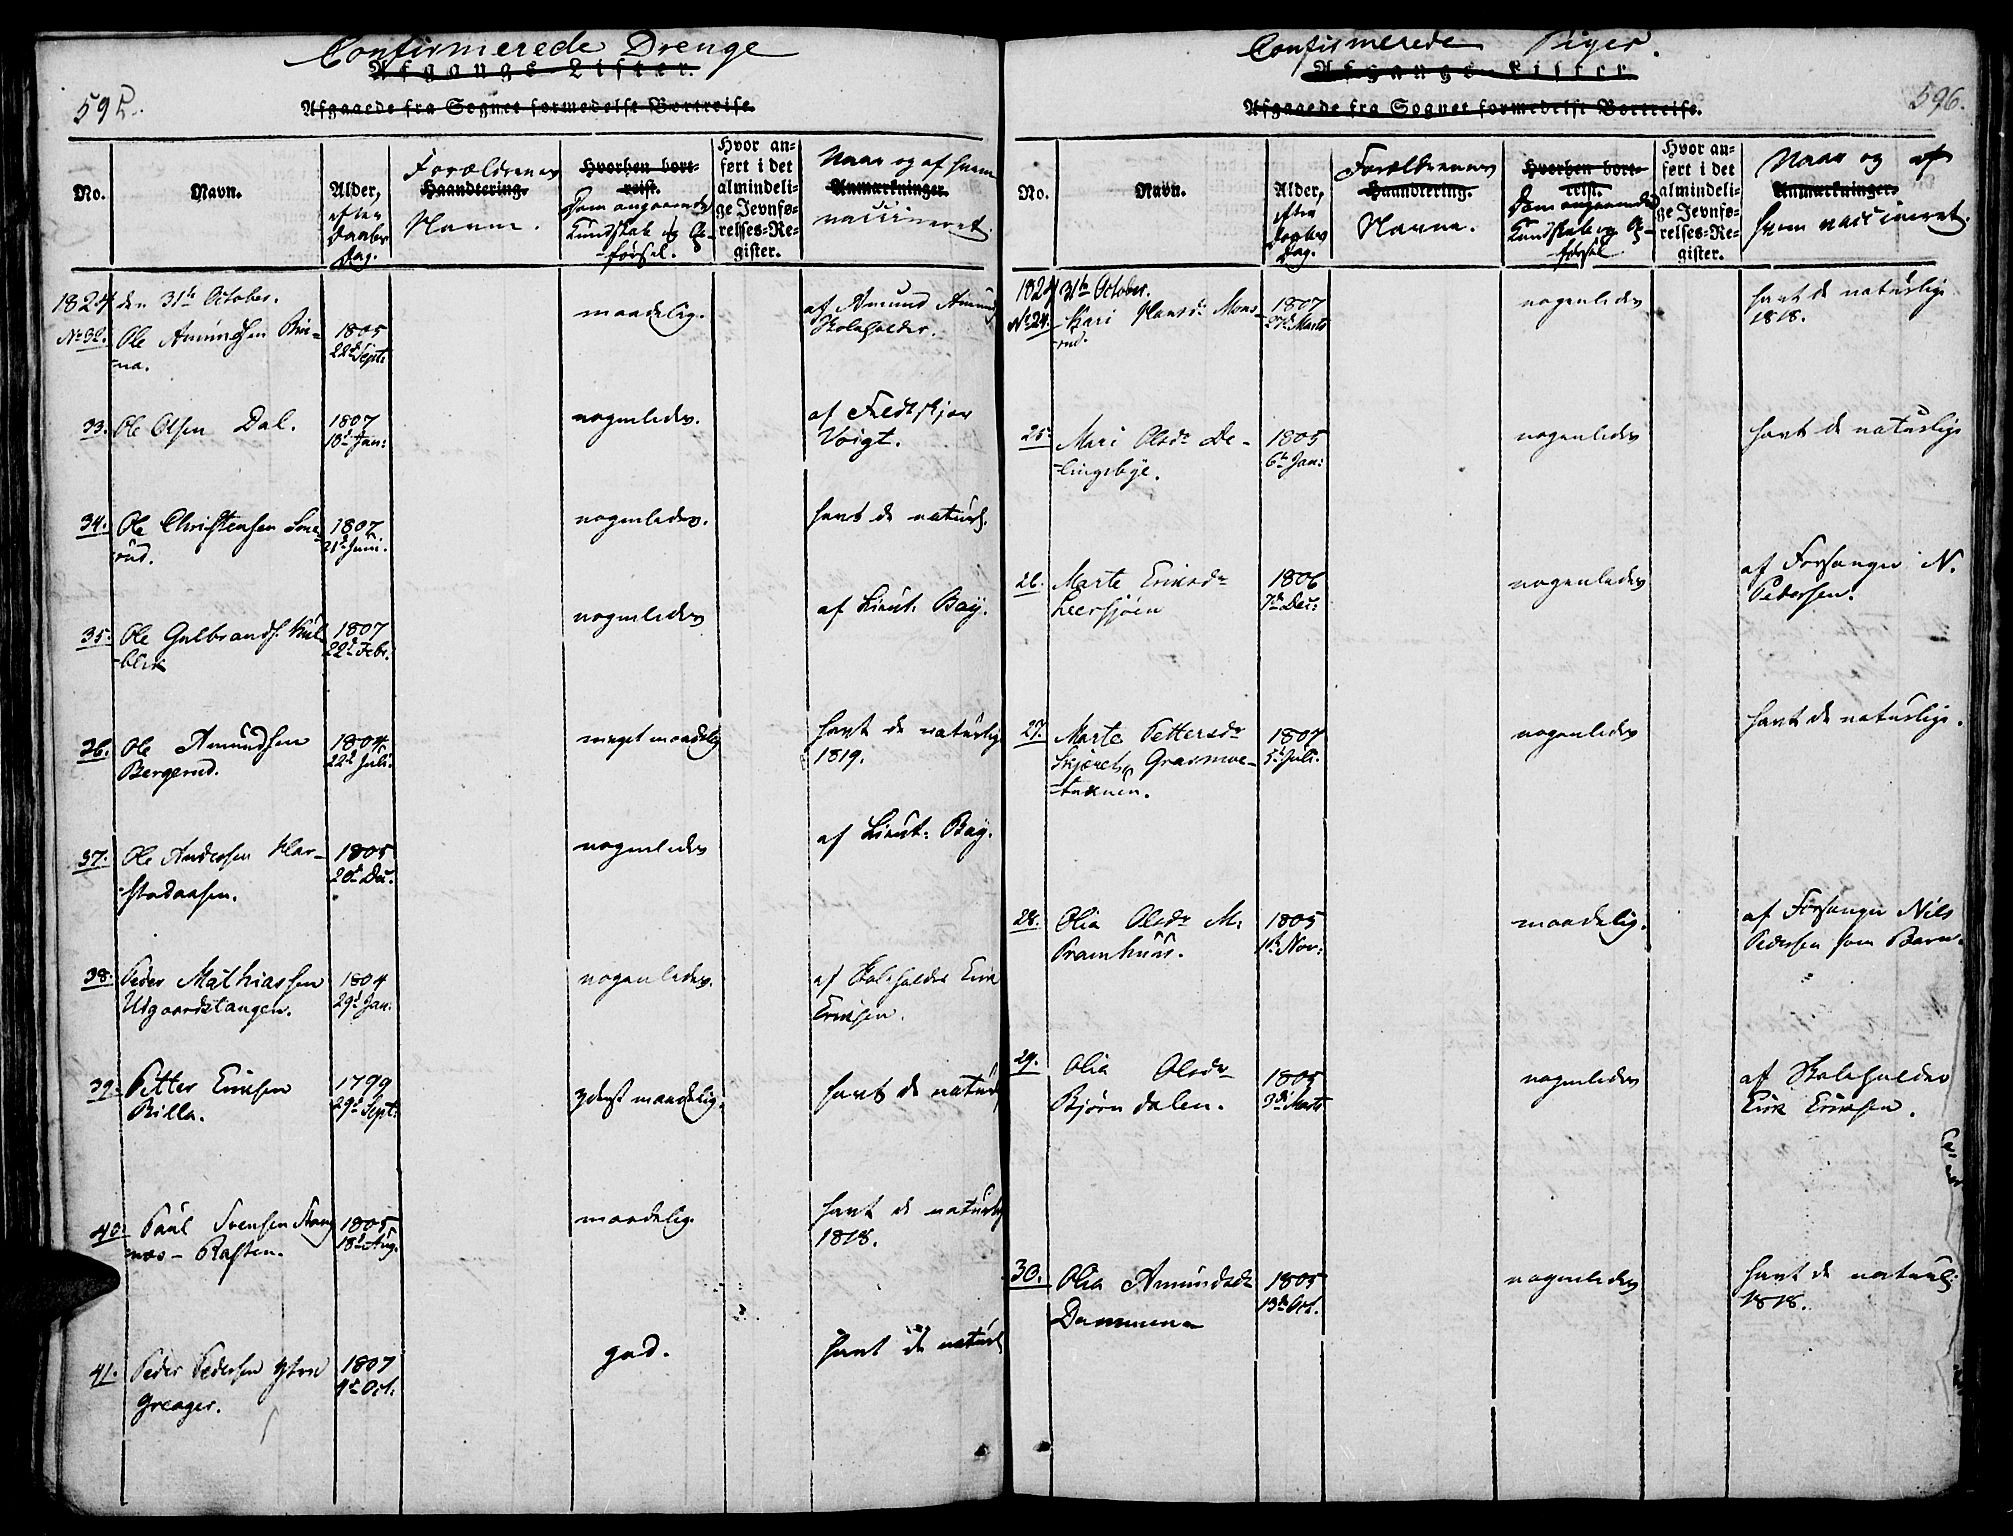 Confirmerede Drenge
Afgangs-Lister.
595.
Afgaaede fra Sognet formedelst Bortreise.
No.
Navn.
Alder,
efter
Daabs
Dag.
Forældrenes
Haandtering.
Navne.
Hvorhen bort-
reist.
Dom angaaende
Kundskab og Op-
førsel.
Hvor an-
ført i det
almindeli-
ge Jevnfø-
relses-Re-
gister.
Naar og af hvem
Anmærkninger.
vaccineret.
1824 den 31te October.
No 32. Ole Amundsen
na.
1805
22d Sept:
maadelig.
af Amund Amunds
Skoleholder.
33. Ole Olsen Dal.
1807
18d Jan:
nogenledes.
af
Voigt.
34. Ole Christensen
rud.
1807
21d Juni.
nogenledes.
havt de naturl.
35. Ole Gulbrands. Kul-
blik
1807
22d Febr:
nogenledes
af Lieut: Bay.
36. Ole Amundsen
Bergerud.
1804
22d Juli:
meget maadelig
havt de naturlig
1819.
37. Ole Andersen Har-
stadaasen.
1805
20d Dec:
nogenledes
af Lieut: Bay.
38. Peder Mathiassen
Udgaardstangen.
1804
29d Jan:
nogenledes.
af Skoleholder Erik
Eriksen.
39. Petter Eriksen
Billa.
1799
29d Sept:
yderst maadelig.
havt de naturl
40. Paul Svensen
næs- Rasten.
1805
18d Aug.
maadelig.
havt de naturlig
1818.
41. Peder Pedersen Ytre
Greager.
1807
4d Oct.
god.
havt de naturl
Confirmerede Piger.
Afgangs-Lister
596.
Afgaaede fra Sognet formedelst Bortreise.
No.
Navn.
Alder,
efter
Daabs
Dag.
Forældrenes
Haandtering.
Navne.
Hvorhen bort-
reist.
Dom angaaende
Kundskab og Op-
førsel
Hvor an-
ført i det
almindeli-
ge Jevnfø-
relses-Re-
gister.
Naar og af
Anmærkninger.
hvem vaccineret.
1824 31te October.
No 24. Kari Hansdr Mons-
rud.
1807
27d Marts
nogenledes
havt de naturlige
1818.
25. Mari Olsdr De-
lingsbye.
1805
6te Jan:
nogenledes
havt de naturlige
26. Marte Eriksdr
Leersjøen
1806
7de Dec:
nogenledes
af Forsanger N.
Pedersen.
27. Marte Pettersdr
Skjæret, Grasmoe-
1807
5te Juli.
nogenledes
havt de naturlige.
28. Olia Olsdr M:
Pramhuus.
1805
1te Nov:
maadelig.
af Forsanger Nils
Pedersen som Barn.
29. Olia Olsdr
Bjørndalen.
1805
3die Marts
nogenledes
af Skoleholder
Erik Eriksen.
30. Olia Amundsdr
Dammen
1805
13de Oct.
nogenledes
havt de naturlig.
1818.